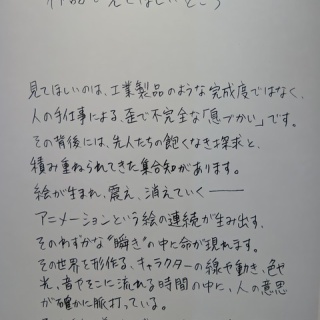 作品で見てほしいところ
見てほしいのは、工業製品のような完成度ではなく、
人の手仕事による、歪で不完全な「息づかい」です。
その背後には、先人たちの飽くなき探求と、
積み重ねられてきた集合知があります。
絵が生まれ、震え、消えていく――
アニメーションという絵の連続が生み出す、
そのわずかな“瞬き”の中に命が現れます。
その世界を形作る、キャラクターの線や動き、色や
光、音やそこに流れる時間の中に、人の意思
が確かに脈打っている。